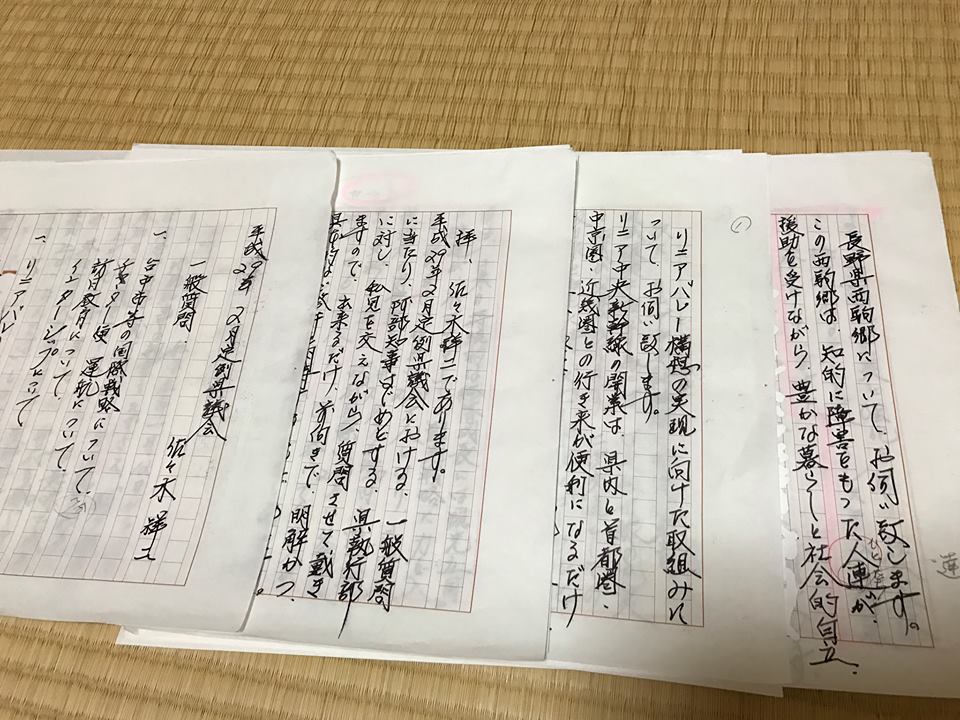 平成29年 2月定例県議会
一般質問 佐々木祥二
一、台中市等の国際戦略について
チャーター便 運航について
訪日教育について
インターンシップについて
一、リニアバレー
拝、佐々木祥二であります。
平成29年2月定例県議会における、一般質問
に当たり、阿部知事はじめとする、県執行部
に対し、私見を交えながら、質問させて、戴き
ますので、出来るだけ、前向きで、明解かつ、
リニアバレー構想の実現に向けた取組みに
ついて、お伺い致します。
リニア中央新幹線の開業は、県内と首都圏・
中京圏・近畿圏との行き来が便利になるだけ
長野県西駒郷について、お伺い致します。
この西駒郷は、知的に障害をもった人達が、
援助を受けながら、豊かな暮らしと社会的自立、